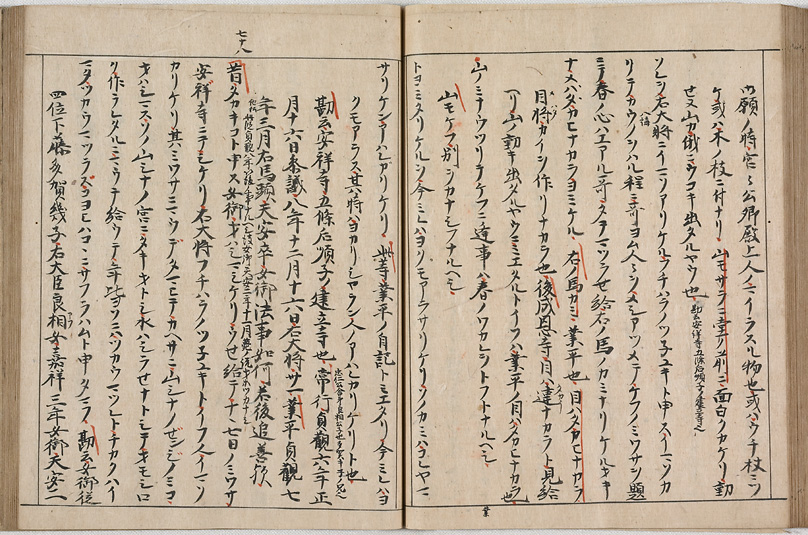 御願ノ時宮々公卿殿上人ニイラスル物也或ハウチ枝ニツ
ケ或ハ木ノ枝ニ付ナリ 山モサラニ堂ノ前ニ 面白クカケリ動
せ又山カ俄ニウコキ出タルヤウ也 勘云安祥寺五條后順子ノ建立寺也
ソレヲ右大将ニイマソカリケルフチハラノツ子ユキト申スイマソカ
リテカウノヲハル程ニ哥ヨム人々ヲメシアツメテケフノミワサヲ題
ニテ春ノ心ハエアル哥タテマツラせ給右ノ馬ノカミナリケルオキ
ナメハタカヒナカラヨミケル 右ノ馬カミ業平也 目ハタカヒナカラ
目 作リナカラ也 後成恩寺目ハ違ナカラト見給
山ノ動キ出タルヤウニミエタルトイフハ業平ノ目ハタカヒナカラ也
山ノミナウツリテケフニ逢事ハ春ノワカレヲトフトナルヘシ
山モケフ別シカナシフナルヘシ
トヨミタリケルヲ今ミレハヨクモアラサリケリソノカミハコレヤマ
サリケンアハレカリケリ 此等業平ノ自記トミエタリ今ミレハヨ
クモアラス其時ハヨカリシヤラン人ノアハレカリケリト也
勘云安祥寺五條后順子建立寺也 常行貞観六年正
月十六日参議八年十二月十六日右大将卅一業平貞観七
年三月右馬頭天安卒女御法事如何若後追善欤
七十八
昔タカキコト申ス女御オハシマシケリウせ給テナヽ七日ノミワサ
安祥寺ニテシケリ右大将フチハラノツ子ユキトイフ人イマソ
カリケリ其ミワサニマウデタマヒテカヘサニ山シナノゼンジノミコ
オハシマスソノ山シナノ宮ニタキオトシ水ハシラせナトシテオモシロ
ク作ラレタルニマウテ給ウテ年比ヨソニハツカウマツレトチカクハイ
マタツカウマツラズコヨヒハコヽニサフラハムト申タマフ 勘云女御従
四位下藤多賀幾子右大臣良相女嘉祥三年女御天安二